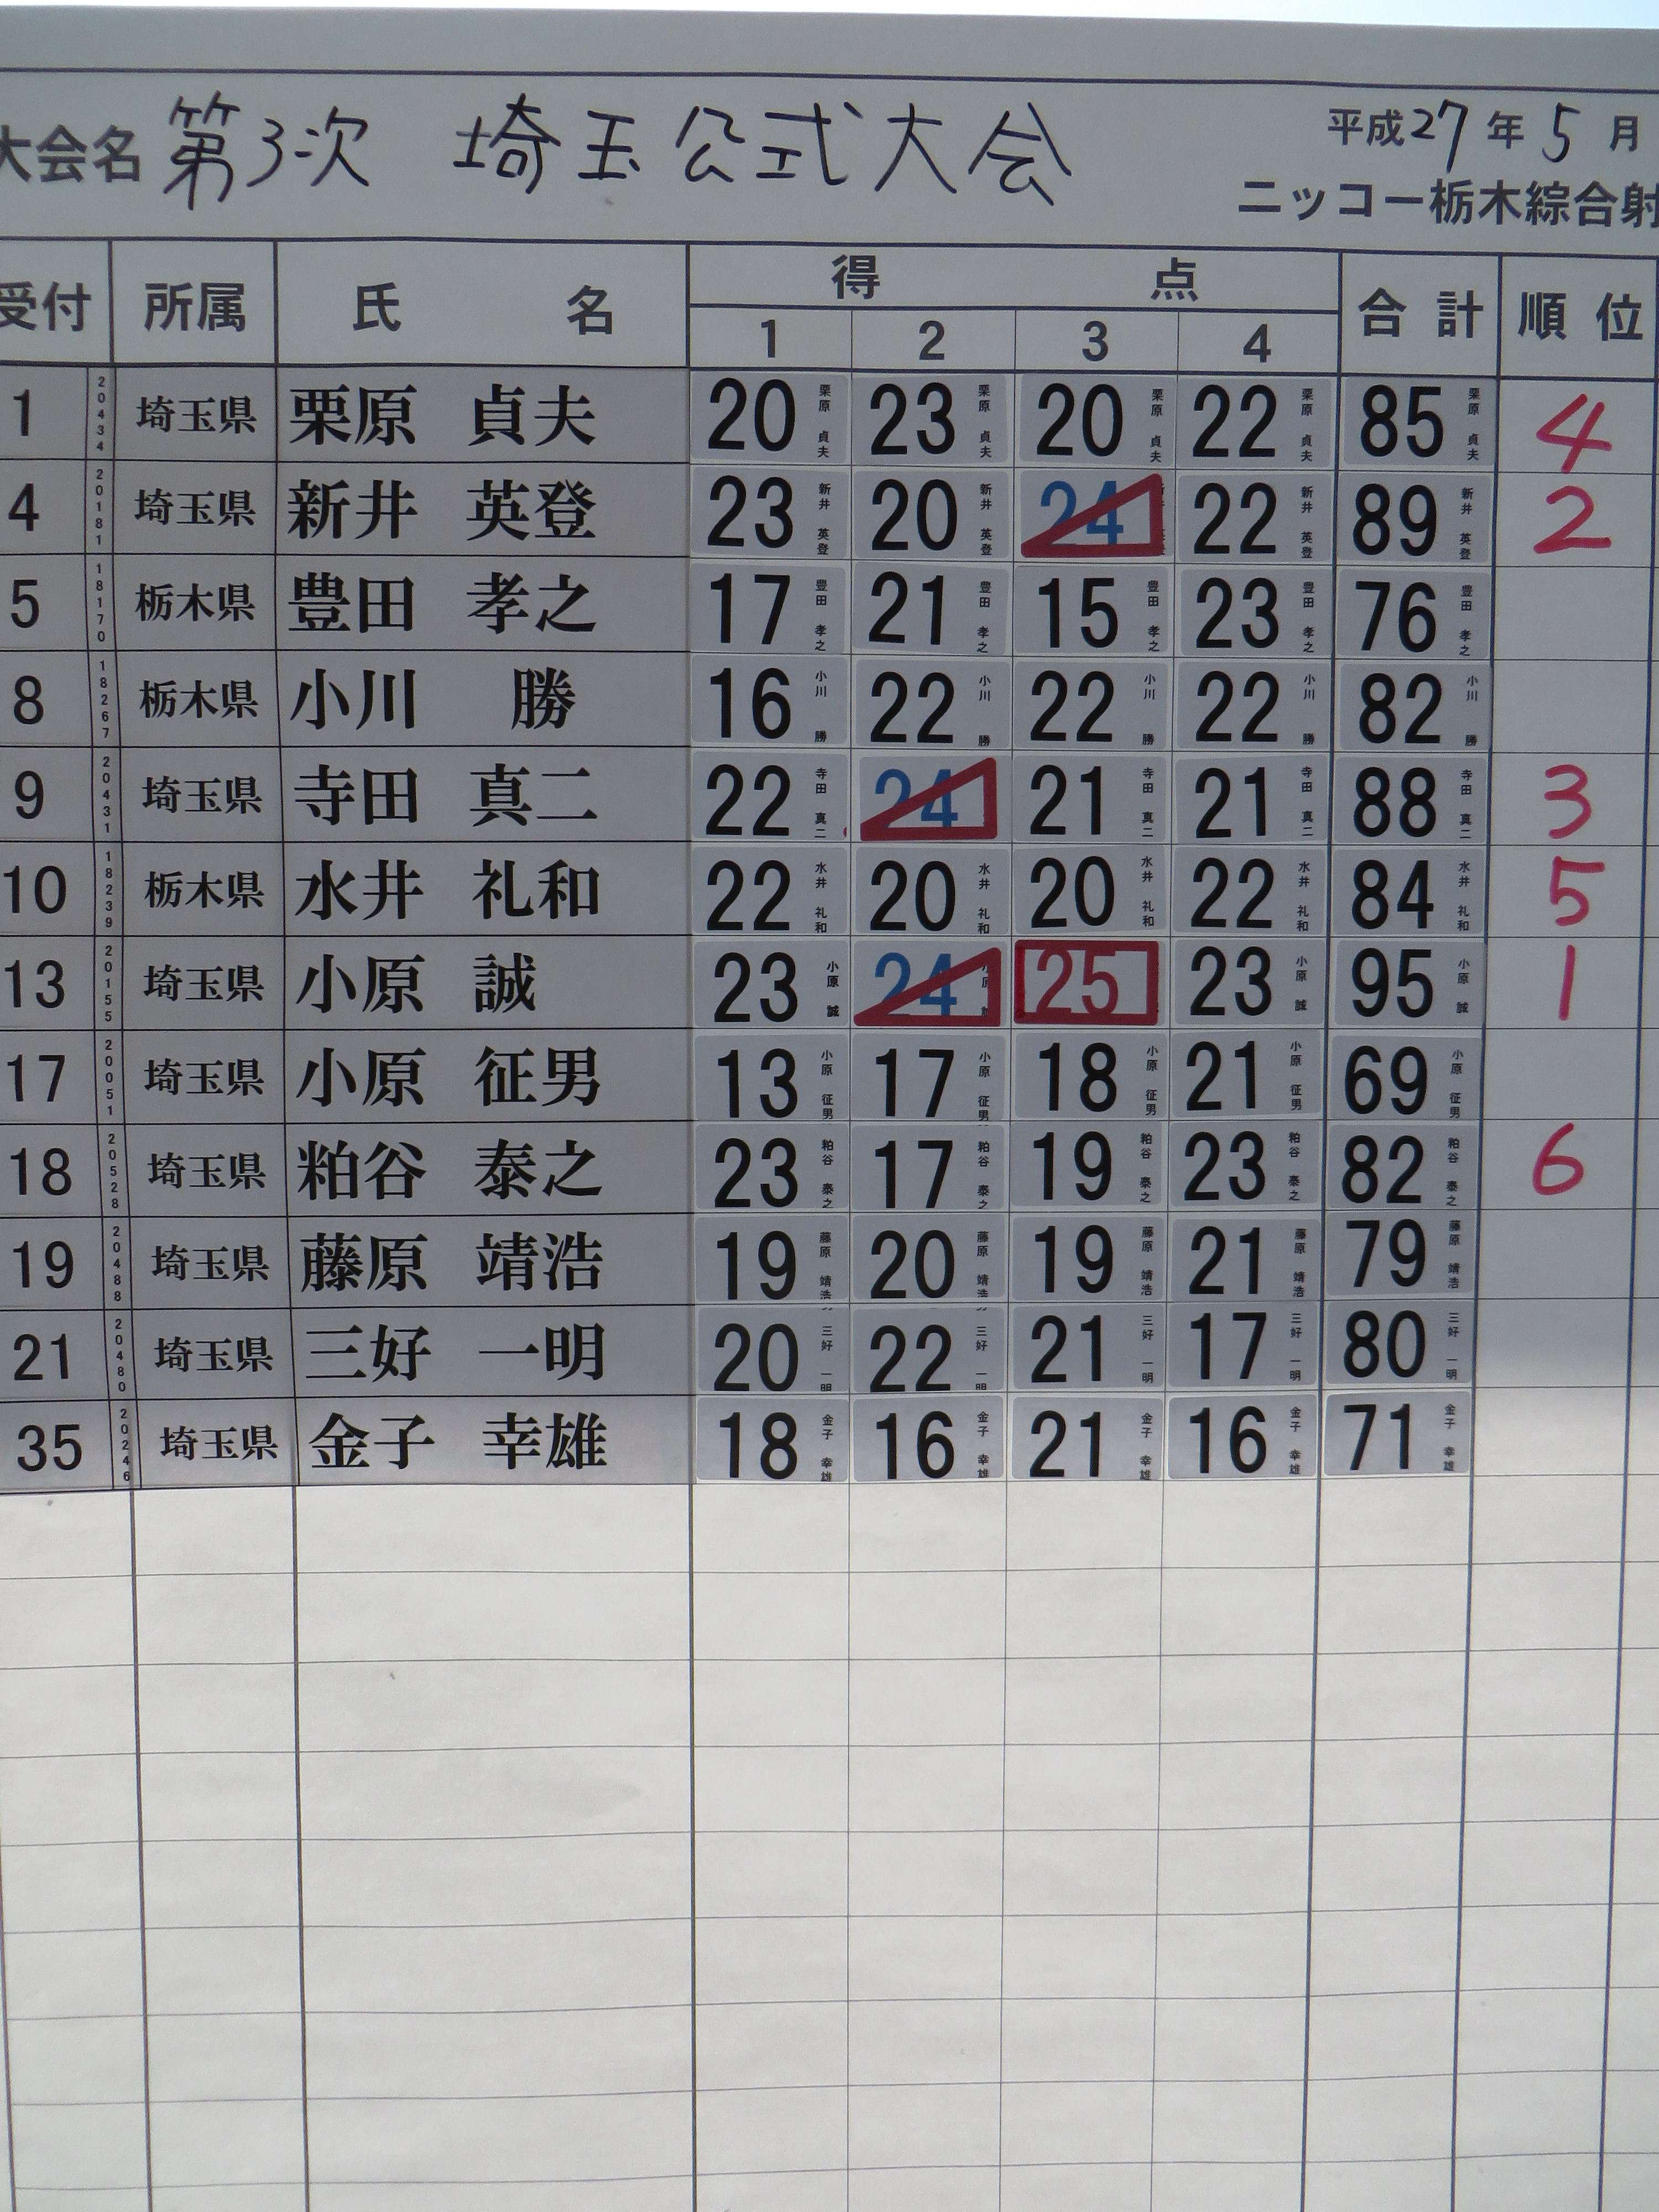 大会名 第3次 埼玉公式大会 平成27年5月
ニッコー栃木綜合射
受付 所属 氏名 得点 合計 順位
1 2 3 4
1 20434 埼玉県 栗原 貞夫 20 栗原 貞夫 23 栗原 貞夫 20 栗原 貞夫 22 栗原 貞夫 85 栗原 貞夫 4
4 20181 埼玉県 新井 英登 23 新井 英登 20 新井 英登 24 22 新井 英登 89 新井 英登 2
5 18170 栃木県 豊田 孝之 17 豊田 孝之 21 豊田 孝之 15 豊田 孝之 23 豊田 孝之 76 豊田 孝之
8 18267 栃木県 小川 勝 16 小川 勝 22 小川 勝 22 小川 勝 22 小川 勝 82 小川 勝
9 20431 埼玉県 寺田 真二 22 寺田 真二 24 21 寺田 真二 21 寺田 真二 88 寺田 真二 3
10 18239 栃木県 水井 礼和 22 水井 礼和 20 水井 礼和 20 水井 礼和 22 水井 礼和 84 水井 礼和 5
13 20155 埼玉県 小原 誠 23 小原 誠 24 25 23 小原 誠 95 小原 誠 1
17 20051 埼玉県 小原 征男 13 小原 征男 17 小原 征男 18 小原 征男 21 小原 征男 69 小原 征男
18 20528 埼玉県 粕谷 泰之 23 粕谷 泰之 17 粕谷 泰之 19 粕谷 泰之 23 粕谷 泰之 82 粕谷 泰之 6
19 20488 埼玉県 藤原 靖浩 19 藤原 靖浩 20 藤原 靖浩 19 藤原 靖浩 21 藤原 靖浩 79 藤原 靖浩
21 20480 埼玉県 三好 一明 20 三好 一明 22 三好 一明 21 三好 一明 17 三好 一明 80 三好 一明
35 20246 埼玉県 金子 幸雄 18 金子 幸雄 16 金子 幸雄 21 金子 幸雄 16 金子 幸雄 71 金子 幸雄